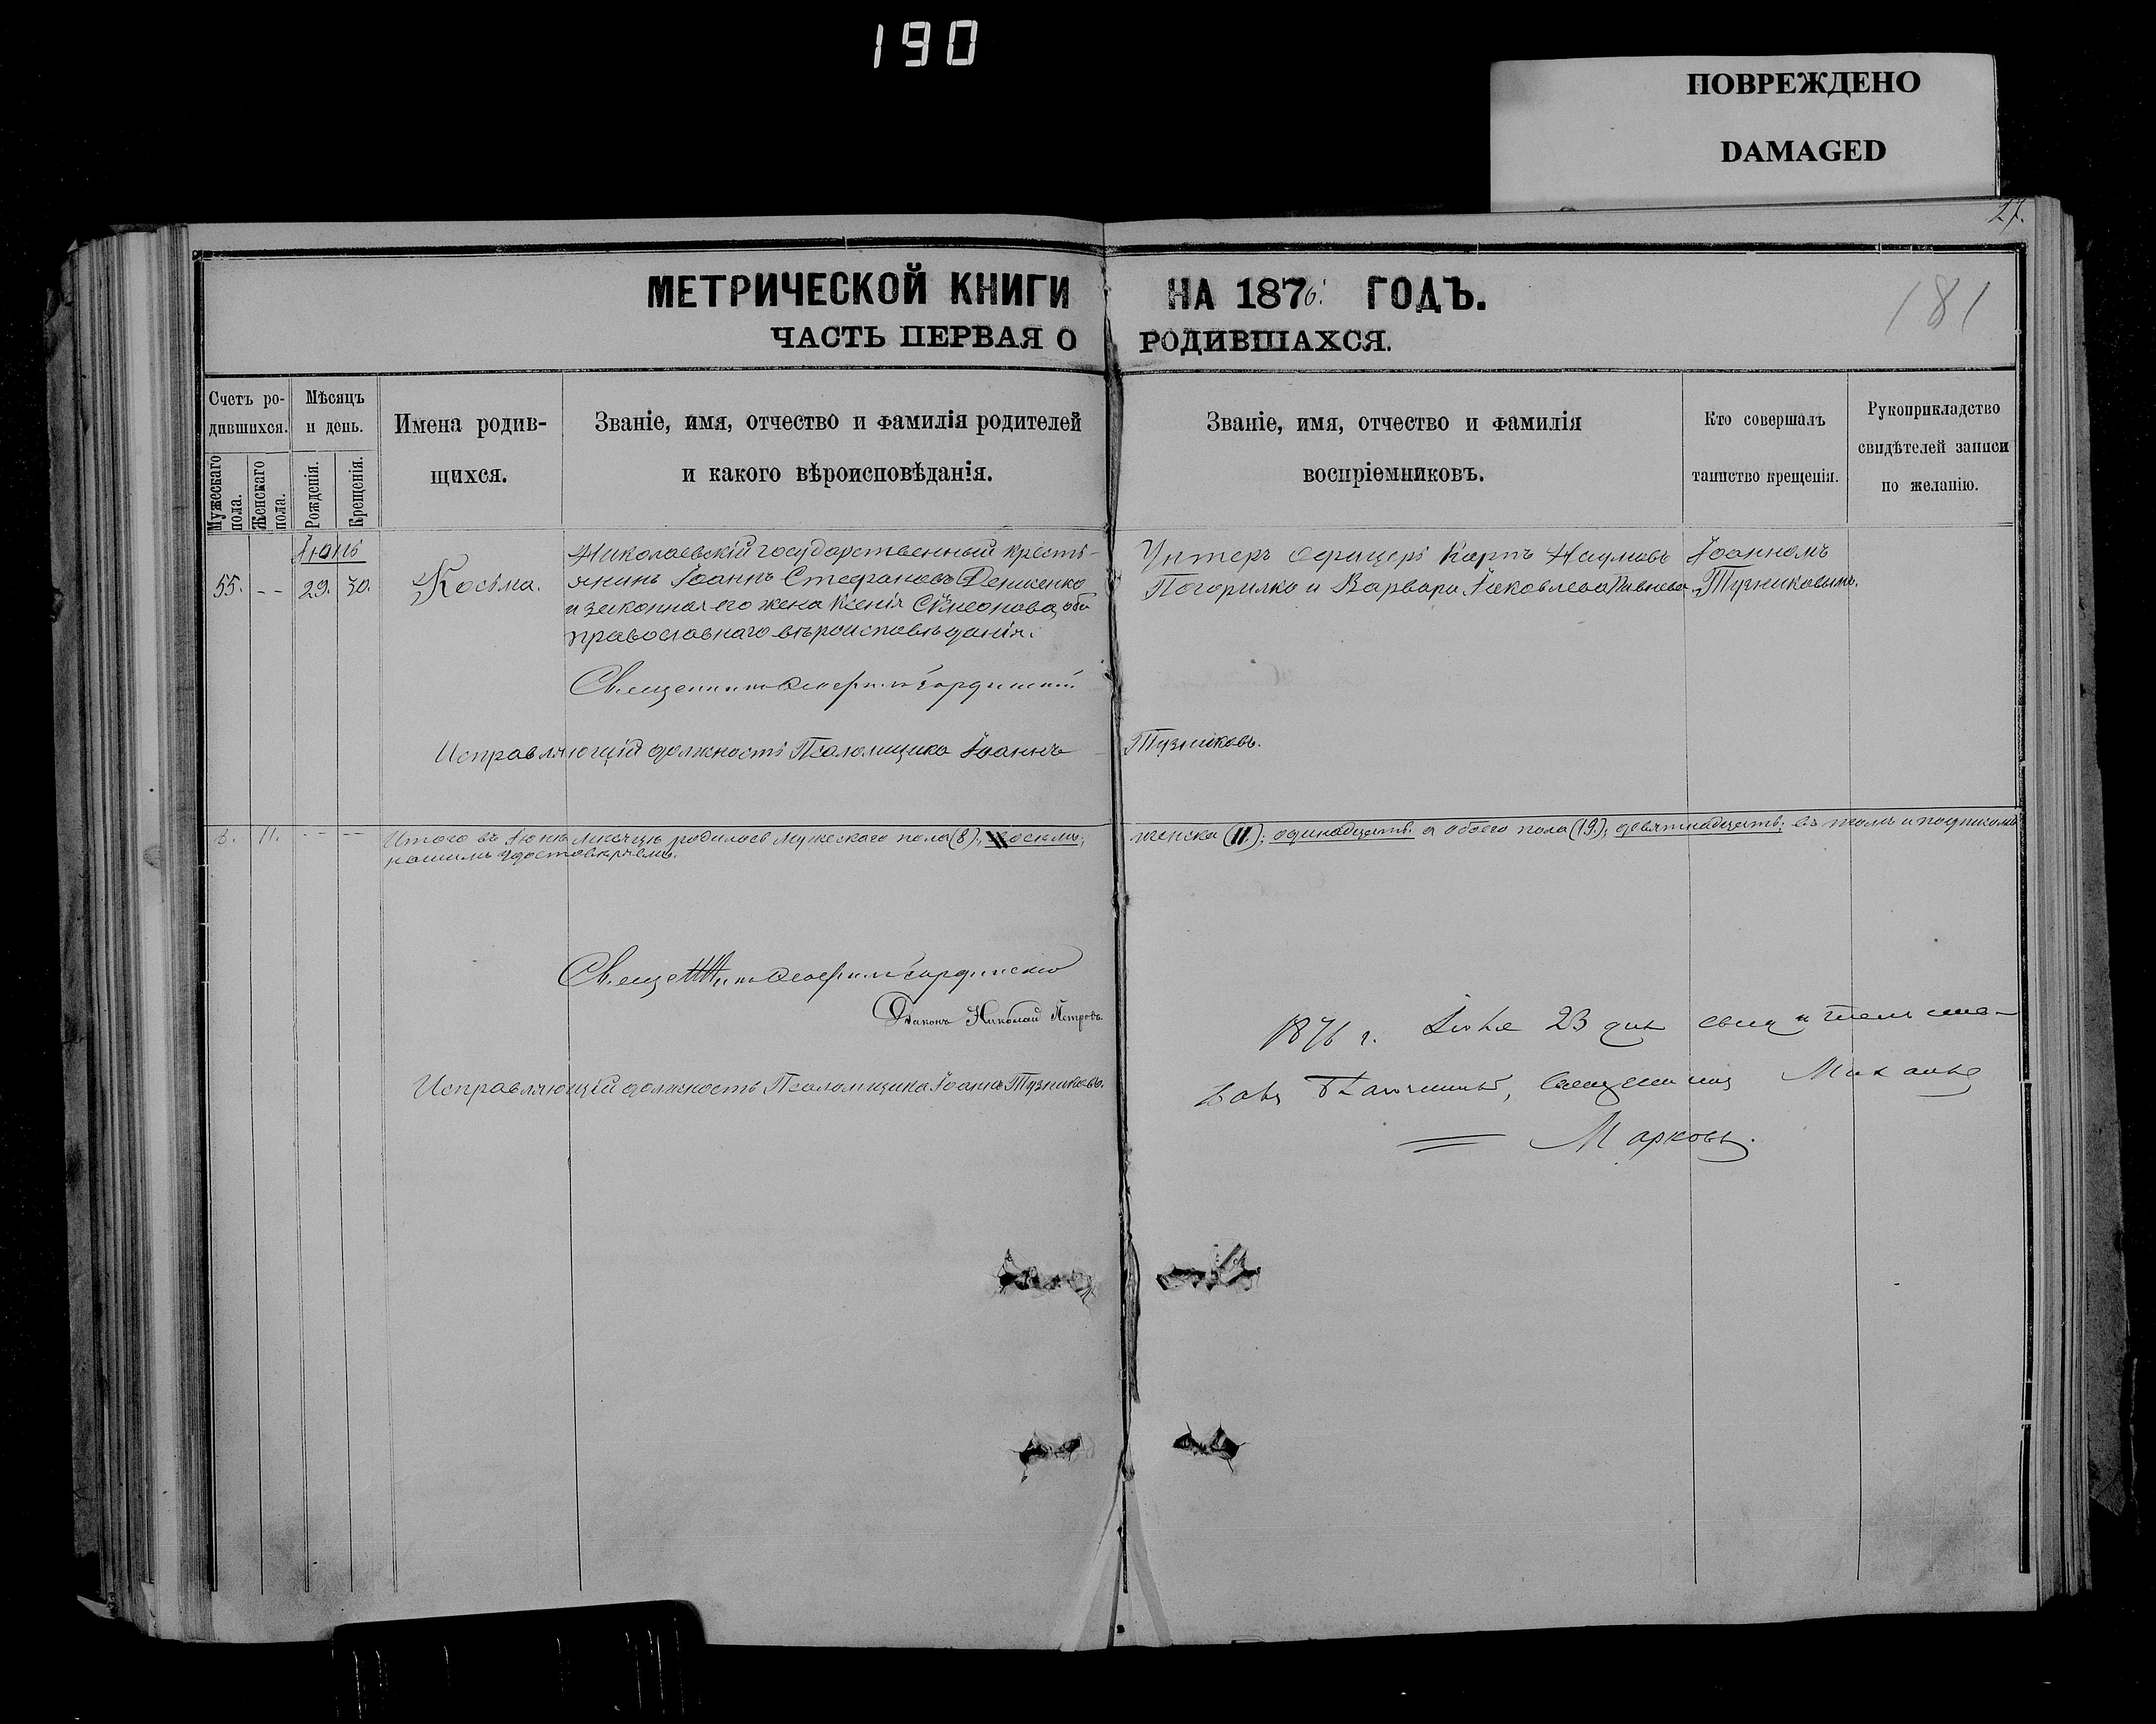 190
ПОВРЕЖДЕНО
DAMAGED
27.
181
МЕТРИЧЕСКОЙ КНИГИ НА 1876. ГОДЪ.
ЧАСТЬ ПЕРВАЯ О РОДИВШАХСЯ.
Счетъ ро-
дившихся.
Мужескаго
пола.
Женскаго
пола.
Мѣсяцъ
и день.
Рожденія.
Крещенія.
Имена родив-
щихся.
Званіе, имя, отчество и фамилія родителей
и какого вѣроисповѣданія.
Званіе, имя, отчество и фамилія
воспріемниковъ.
Кто совершалъ
таинство крещенія.
Рукоприкладство
свидѣтелей записи
по желанію.
Іюнь
55. -- 29. 30. Косьма.
Николаевскій государственный кресть-
янинъ Іоаннъ Стефановъ Денисенко
и законная его жена Ксенія Сѵмеонова, оба
православнаго вѣроисповѣданія.
Унтеръ офицеръ Карпъ Наумовъ
Погорилко и Варвара Іаковлева
Іоанномъ
Тузниковымъ.
Священникъ
Исправляющій должность Псаломщика Іоаннъ Тузниковъ.
8. 11. -- -- Итого въ Іюнѣ мѣсяцѣ родилось мужескаго пола (8); восемь; женска (11); одинадцать; а обоего пола (19); девятнадцать; въ томъ и подписомъ
нашимъ удостовѣряемъ.
Діаконъ Николай Петровъ.
Исправляющій должность Псаломщика Іоаннъ Тузниковъ.
1876 г. Іюля 23 дня свидѣтельство-
валъ Благочинный, Священникъ Михаилъ
Марковъ.